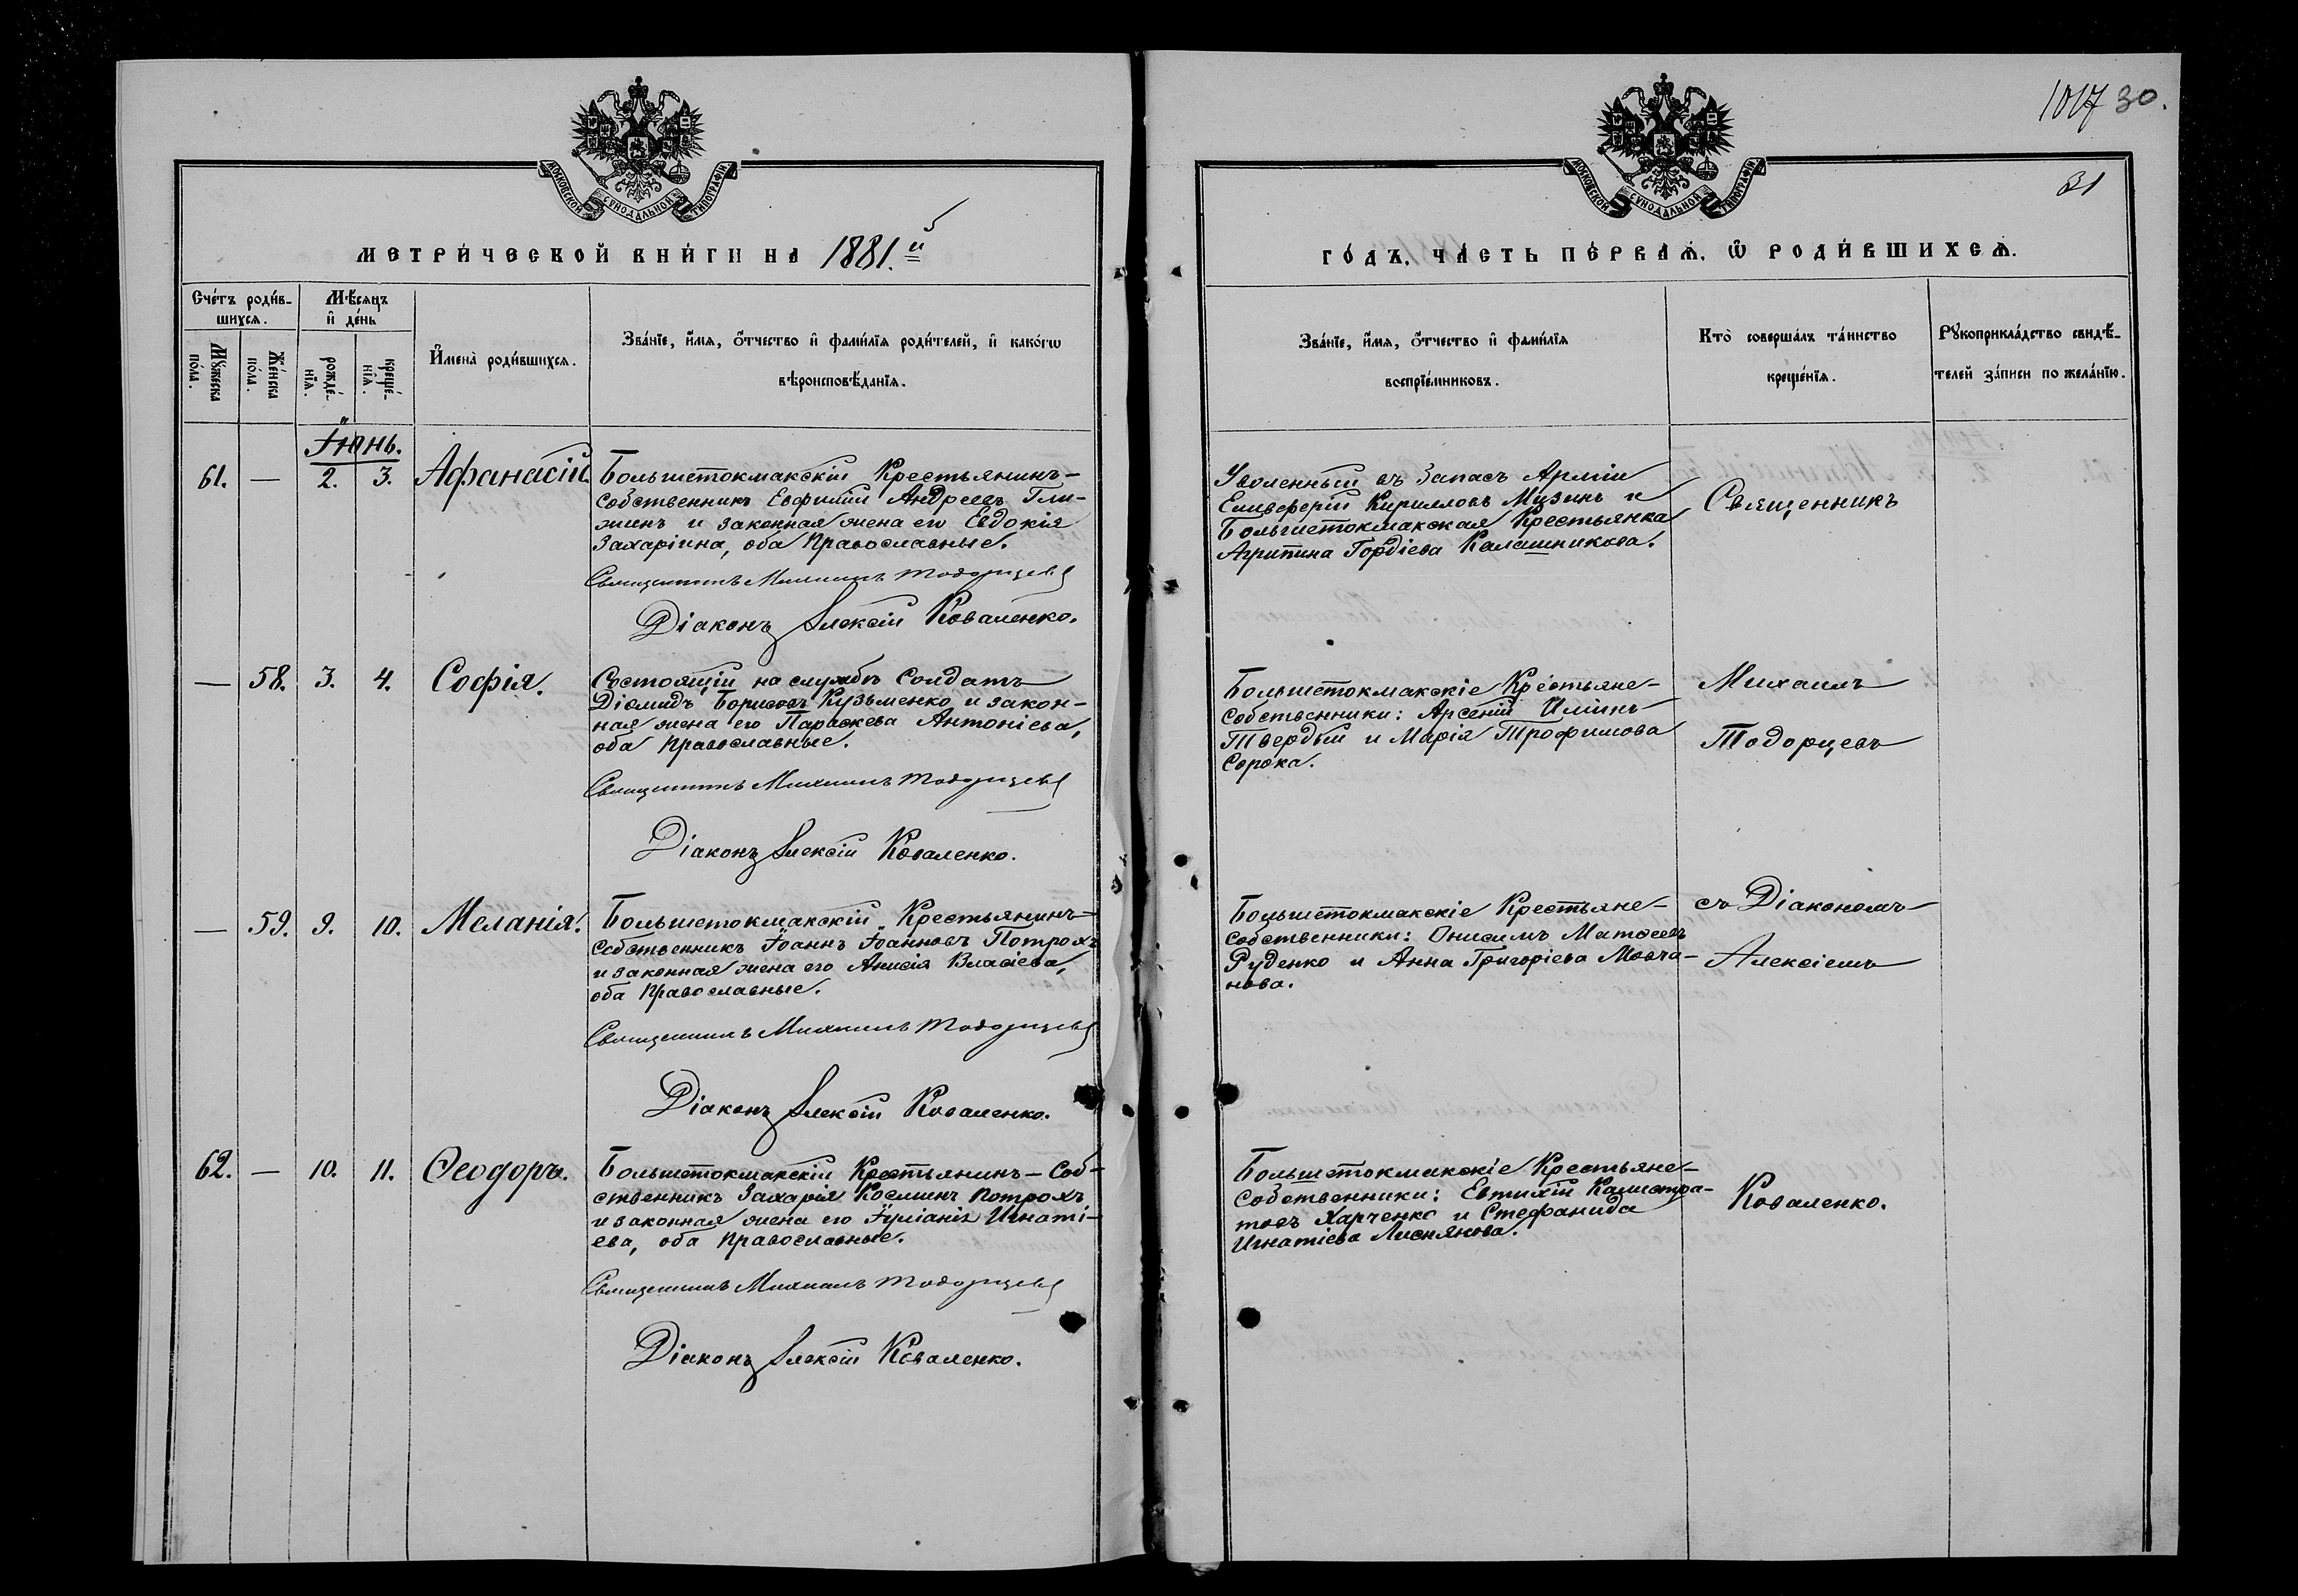 1017 30.
31
МОСКОВСКОЙ СѴНОДАЛЬНОЙ ТИПОГРАФІИ
МЕТРИ́ЧЕСКОЙ КНИ́ГИ НА 1881.й
Сче́тъ роди́в-
шихсѧ.
Мѣ́сѧцъ
и҆ де́нь
Мꙋ́жеска
по́ла.
Же́нска
по́ла.
рожде́-
нїѧ.
креще́-
нїѧ.
И҆мена̀ роди́вшихсѧ.
Зва́нїе, и҆́мѧ, ѻ҆́тчество и҆ фами́лїѧ роди́телей, и҆ како́гѡ
вѣроисповѣ́данїѧ.
Іюнь.
61. — 2. 3. Афанасій.
Большетокмакскій Крестьянинъ-
собственникъ Евфимій Андреевъ Гли-
жинъ и законная жена его Евдокія
Захаріина, оба Православные.
Священникъ Михаилъ Тодорцевъ
Діаконъ Алексій Коваленко.
— 58. 3. 4. Софія.
Состоящій на службѣ Солдатъ
Діомидъ Борисовъ Кузьменко и закон-
ная жена его Параскева Антоніева,
оба Православные.
Священникъ Михаилъ Тодорцевъ
Діаконъ Алексій Коваленко.
— 59. 9. 10. Меланія.
Большетокмакскій Крестьянинъ-
собственникъ Іоаннъ Іоанновъ Потрохъ
и законная жена его Анисія Власіева,
оба Православные.
Священникъ Михаилъ Тодорцевъ
Діаконъ Алексій Коваленко.
62. — 10. 11. Ѳеодоръ.
Большетокмакскій Крестьянинъ-Соб-
ственникъ Захарія Косминъ Потрохъ
и законная жена его Іуліанія Игнаті-
ева, оба Православные.
Священникъ Михаилъ Тодорцевъ
Діаконъ Алексій Коваленко.
МОСКОВСКОЙ СѴНОДАЛЬНОЙ ТИПОГРАФІИ
ГО́ДЪ, ЧА́СТЬ ПЕ́РВАѦ, Ѡ҆ РОДИ́ВШИХСѦ.
Зва́нїе, и҆́мѧ, ѻ҆́тчество и҆ фами́лїѧ
воспрїе́мниковъ.
Кто̀ соверша́лъ та́инство
креще́нїѧ.
Рꙋкоприкла́дство свидѣ́-
телей за́писи по жела́нїю.
Уволенный въ Запасъ Арміи
Елевферій Кирилловъ Музинъ и
Большетокмакская Крестьянка
Агрипина Гордіева Калашникова.
Большетокмакскіе Крестьяне-
собственники: Арсеній Илiинъ
Твердый и Марія Трофимова
Сорока.
Большетокмакскіе Крестьяне-
собственники: Онисимъ Матѳеевъ
Руденко и Анна Григоріева Мовча-
нова.
Большетокмакскіе Крестьяне-
собственники: Евтихій Калистра-
товъ Харченко и Стефанида
Игнатіева Лиснянова.
Священникъ
Михаилъ
Тодорцевъ
съ Діакономъ
Алексіемъ
Коваленко.